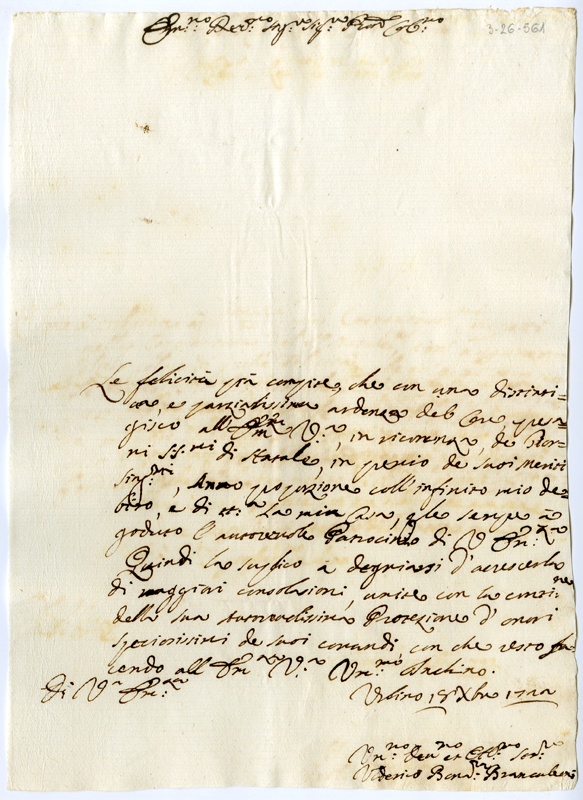 3-26-561
Em:mo Rev:mo Sig:re Sig:re Pron Col:mo
Le felicità più compite, che con una distinti=
va, e parzialissima ardenza del Core, presa=
gisco all'Em:za V:a, in ricorenza, de Gior=
ni SS:mi di Natale, in premio de suoi meriti
sing:mi, hanno proporzione coll'infinito mio de=
bito, e di tt:a la mia Casa, che sempre à
goduto l'autorevole Patrocinio di V Em:za
Quindi la suplico a degniarsi d'acrescerla
di maggiori consolazioni, unire con la contin:ne
della sua Autorevolissima Protezione d'onori
speciosissimi de suoi comandi, con che resto fa=
cendo all Em:za V:a Um:mo Inchino.
Di V:a Em:za
Urbino 18 Xbre
Um:mo Dev:mo et Obl:mo Ser:re
Uderico Brancaleoni